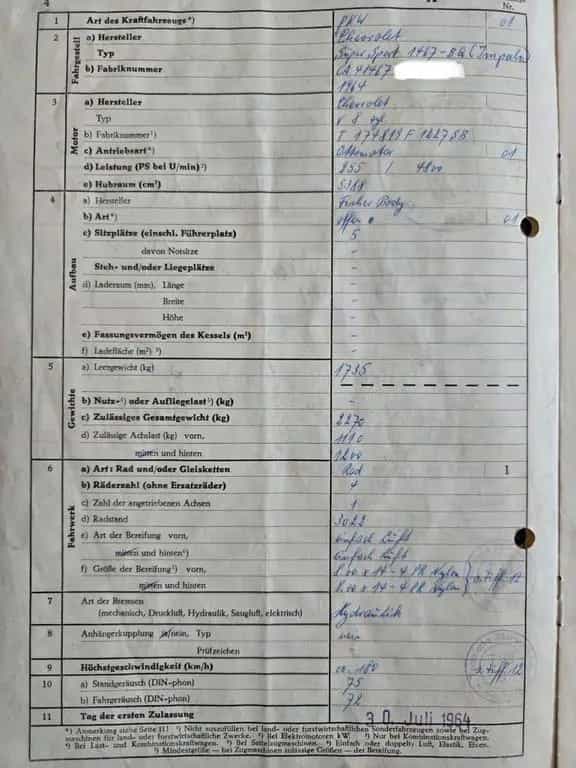 4
Nr.
1 Art des Kraftfahrzeugs*) PKW 01
2 Fahrgestell a) Hersteller Chevrolet
Typ Super Sport 1467-8Q (Impala)
b) Fabriknummer 41467
1964
3 Motor a) Hersteller Chevrolet
Typ V 8 zyl.
b) Fabriknummer¹)
c) Antriebsart*) Ottomotor 01
d) Leistung (PS bei U/min)²) 255 / 4800
e) Hubraum (cm³) 5368
4 Aufbau a) Hersteller Fisher Body
b) Art*) offen 01
c) Sitzplätze (einschl. Führerplatz) 5
davon Notsitze -
Steh- und/oder Liegeplätze -
d) Laderaum (mm), Länge -
Breite -
Höhe -
e) Fassungsvermögen des Kessels (m³) -
f) Ladefläche (m²) ³) -
5 Gewichte a) Leergewicht (kg) 1735
b) Nutz-⁴) oder Aufliegelast⁵) (kg) -
c) Zulässiges Gesamtgewicht (kg) 2270
d) Zulässige Achslast (kg) vorn, 1110
mitten und hinten 1200
6 Fahrwerk a) Art: Rad und/oder Gleisketten Rad 1
b) Räderzahl (ohne Ersatzräder) 4
c) Zahl der angetriebenen Achsen 1
d) Radstand 3022
e) Art der Bereifung vorn, einfach Luft
mitten und hinten⁶) einfach Luft
f) Größe der Bereifung⁷) vorn, 8.00 x 14 - 4 PR Nylon
mitten und hinten 8.00 x 14 - 4 PR Nylon s. Ziff. 12
7 Art der Bremsen
(mechanisch, Druckluft, Hydraulik, Saugluft, elektrisch) Hydraulik
8 Anhängerkupplung ja/nein, Typ nein
Prüfzeichen
9 Höchstgeschwindigkeit (km/h) ca. 180 s. Ziff. 12
10 a) Standgeräusch (DIN-phon) 75
b) Fahrgeräusch (DIN-phon) 72
11 Tag der ersten Zulassung 30. Juli 1964
*) Anmerkung siehe Seite 11! ¹) Nicht auszufüllen bei land- oder forstwirtschaftlichen Sonderfahrzeugen sowie bei Zug-
maschinen für land- oder forstwirtschaftliche Zwecke. ²) Bei Elektromotoren kW. ³) Nur bei Kombinationskraftwagen.
⁴) Bei Last- und Kombinationskraftwagen. ⁵) Bei Sattelzugmaschinen. ⁶) Einfach oder doppelt; Luft, Elastik, Eisen.
⁷) Mindestgröße — bei Zugmaschinen zulässige Größen — der Bereifung.